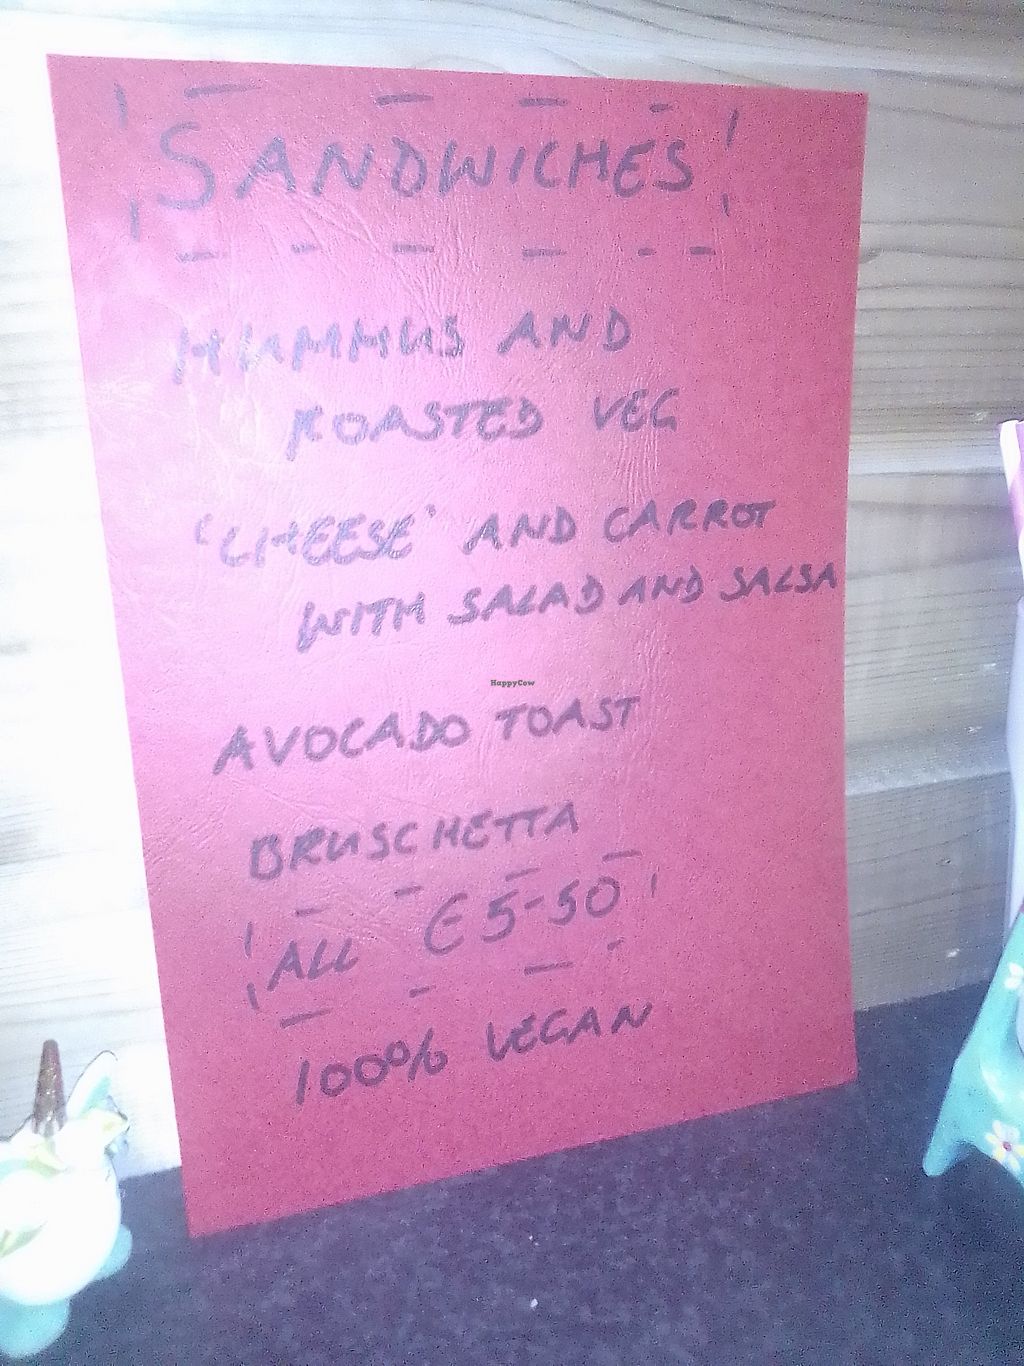 SANDWICHES
HUMMUS AND
ROASTED VEG
'CHEESE' AND CARROT
WITH SALAD AND SALSA
HappyCow
AVOCADO TOAST
BRUSCHETTA
ALL €5-50
100% VEGAN